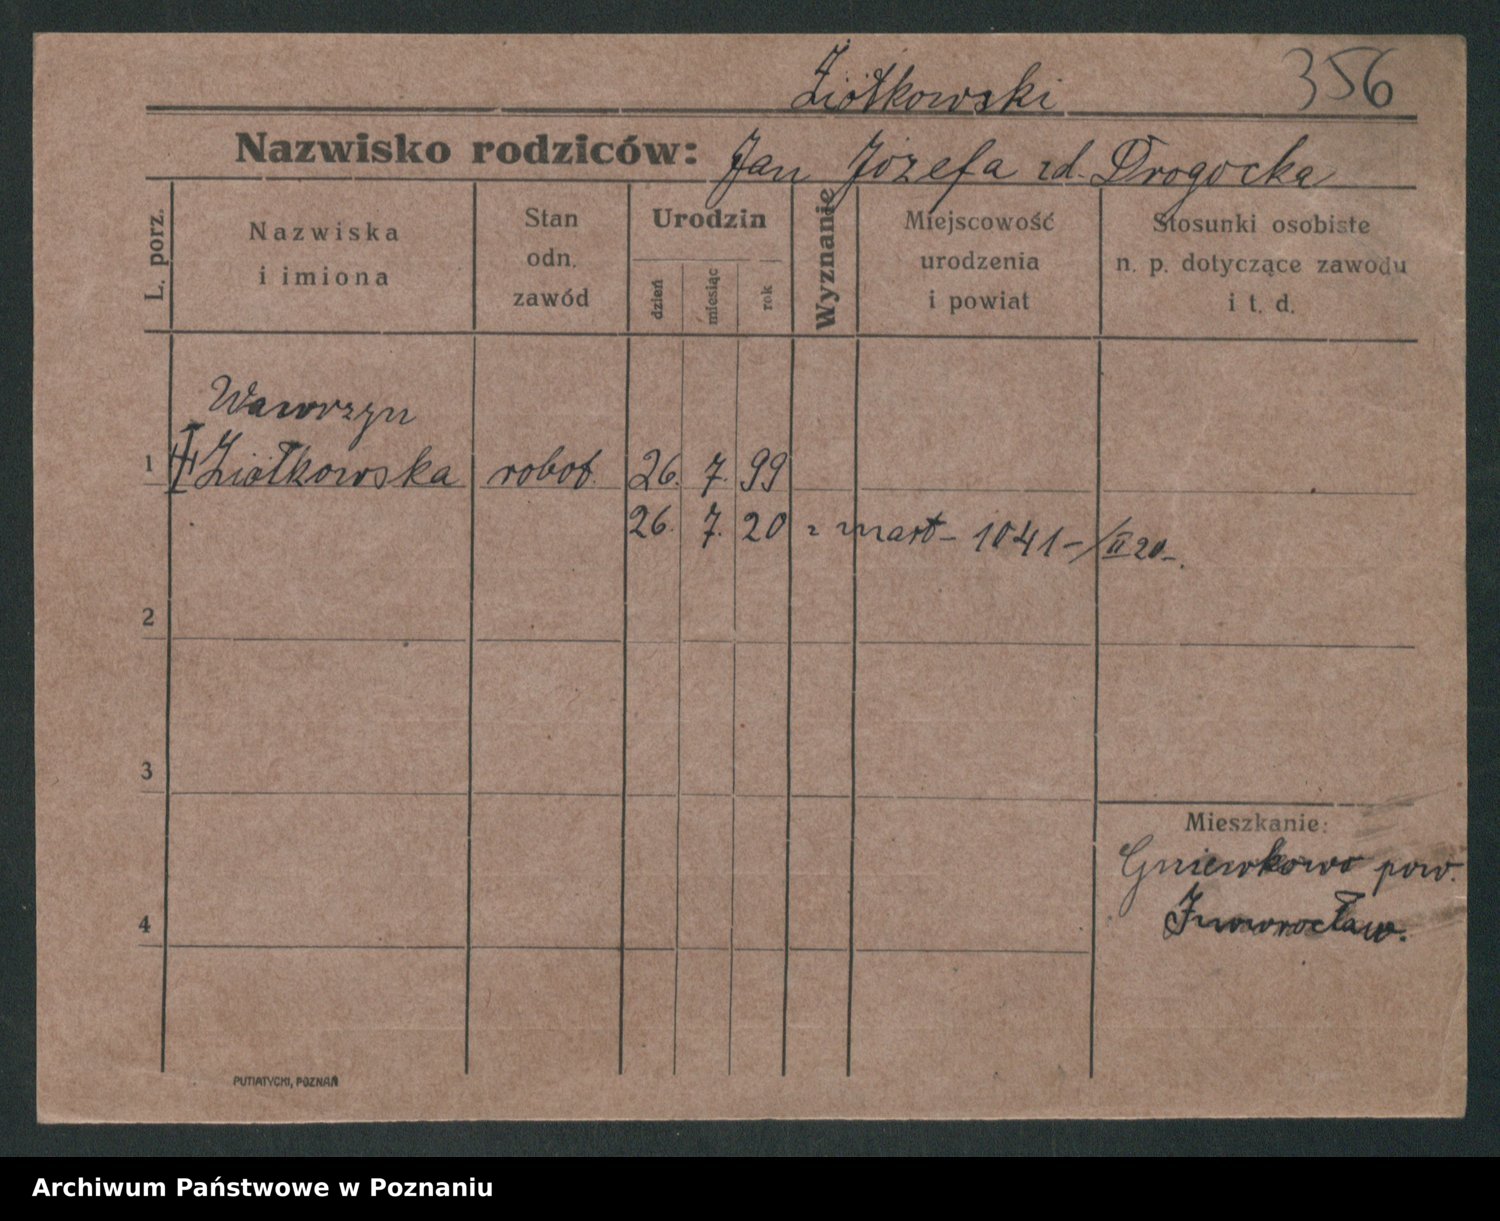 356
Ziółkowski
Nazwisko rodziców: Jan Józefa zd. Drogocka
L. porz.
Nazwiska
i imiona
Stan
odn.
zawód
Urodzin
dzień
miesiąc
rok
Wyznanie
Miejscowość
urodzenia
i powiat
Stosunki osobiste
n. p. dotyczące zawodu
i t. d.
Wawrzyn
1 Ziółkowska robot. 26. 7. 99
26. 7. 20 zmarł - 1041 -/II 20 -.
2
3
4
Mieszkanie:
Gniewkowo pow.
Inowrocław.
PUTIATYCKI, POZNAŃ
Archiwum Państwowe w Poznaniu